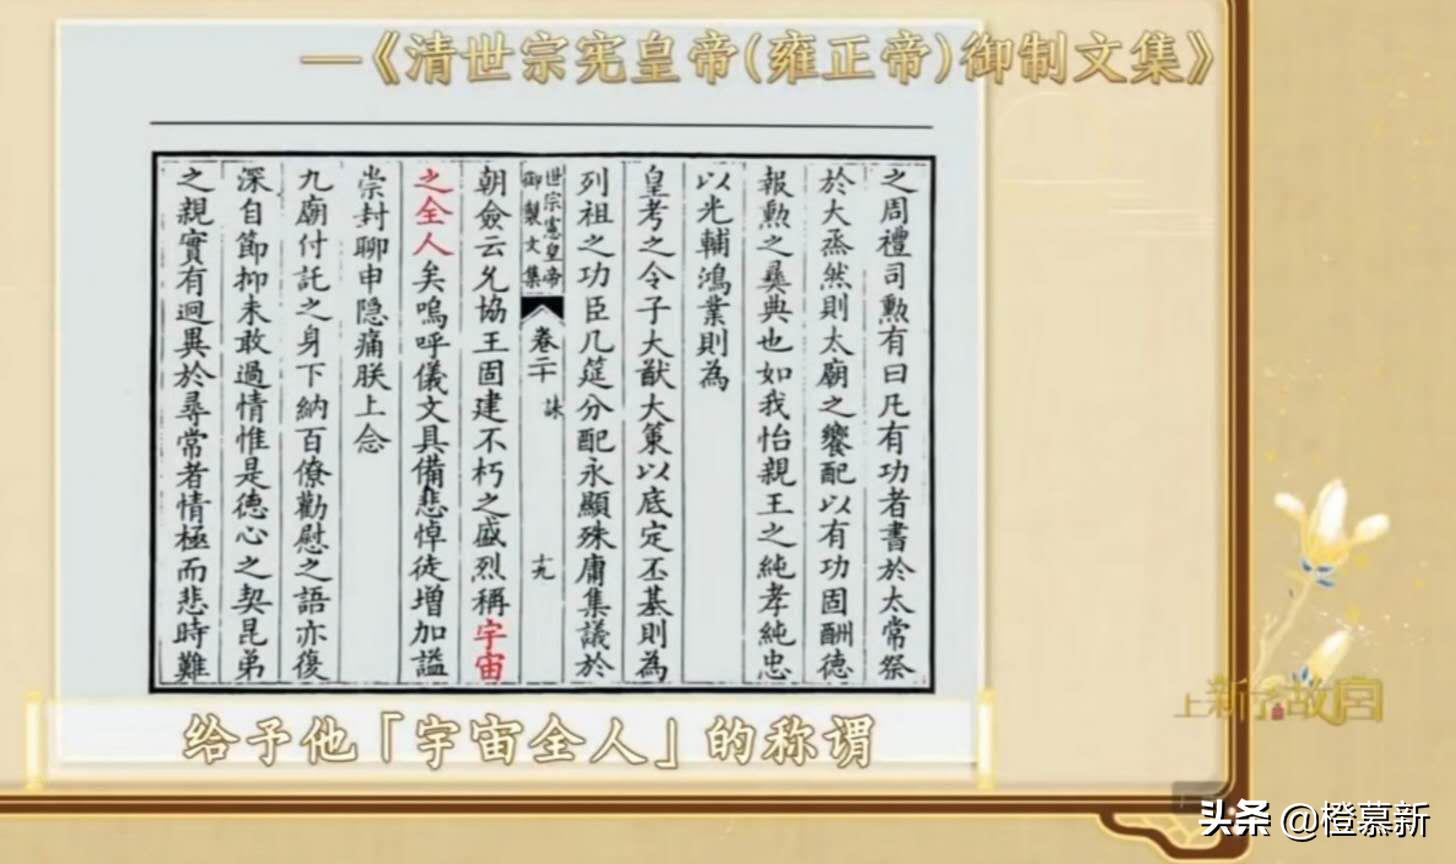 —《清世宗宪皇帝(雍正帝)御制文集》
之周禮司勲有曰凡有功者書於太常祭
於大烝然則太廟之饗配以有功固酬德
報勲之彝典也如我怡親王之純孝純忠
以光輔鴻業則為
皇考之令子大猷大策以底定丕基則為
列祖之功臣几筵分配永顯殊庸集議於
世宗憲皇帝
御製文集
卷二十
誄
十九
朝僉云允協王固建不朽之盛烈稱宇宙
之全人矣嗚呼儀文具備悲悼徒增加謚
崇封聊申隐痛朕上念
九廟付託之身下納百僚勸慰之語亦復
深自節抑未敢過情惟是德心之契昆弟
之親實有迥異於尋常者情極而悲時難
给予他「宇宙全人」的称谓
上新了故宫
头条 @橙慕新